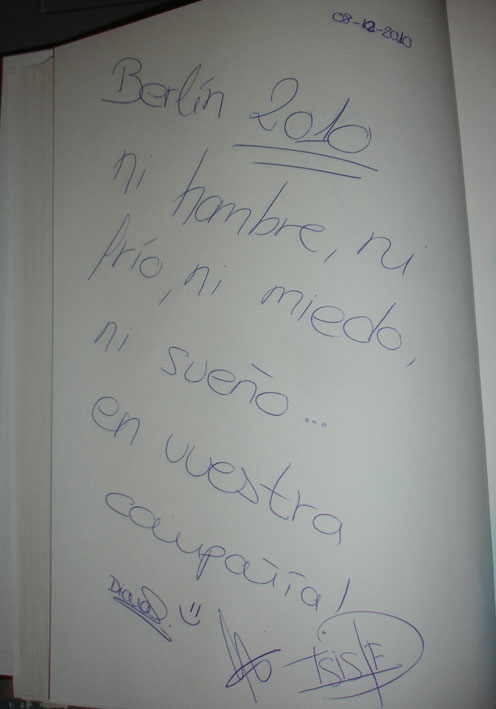 08-12-2010
Berlín 2010
ni hambre, ni
frío, ni miedo,
ni sueño...
en vuestra
compañía!